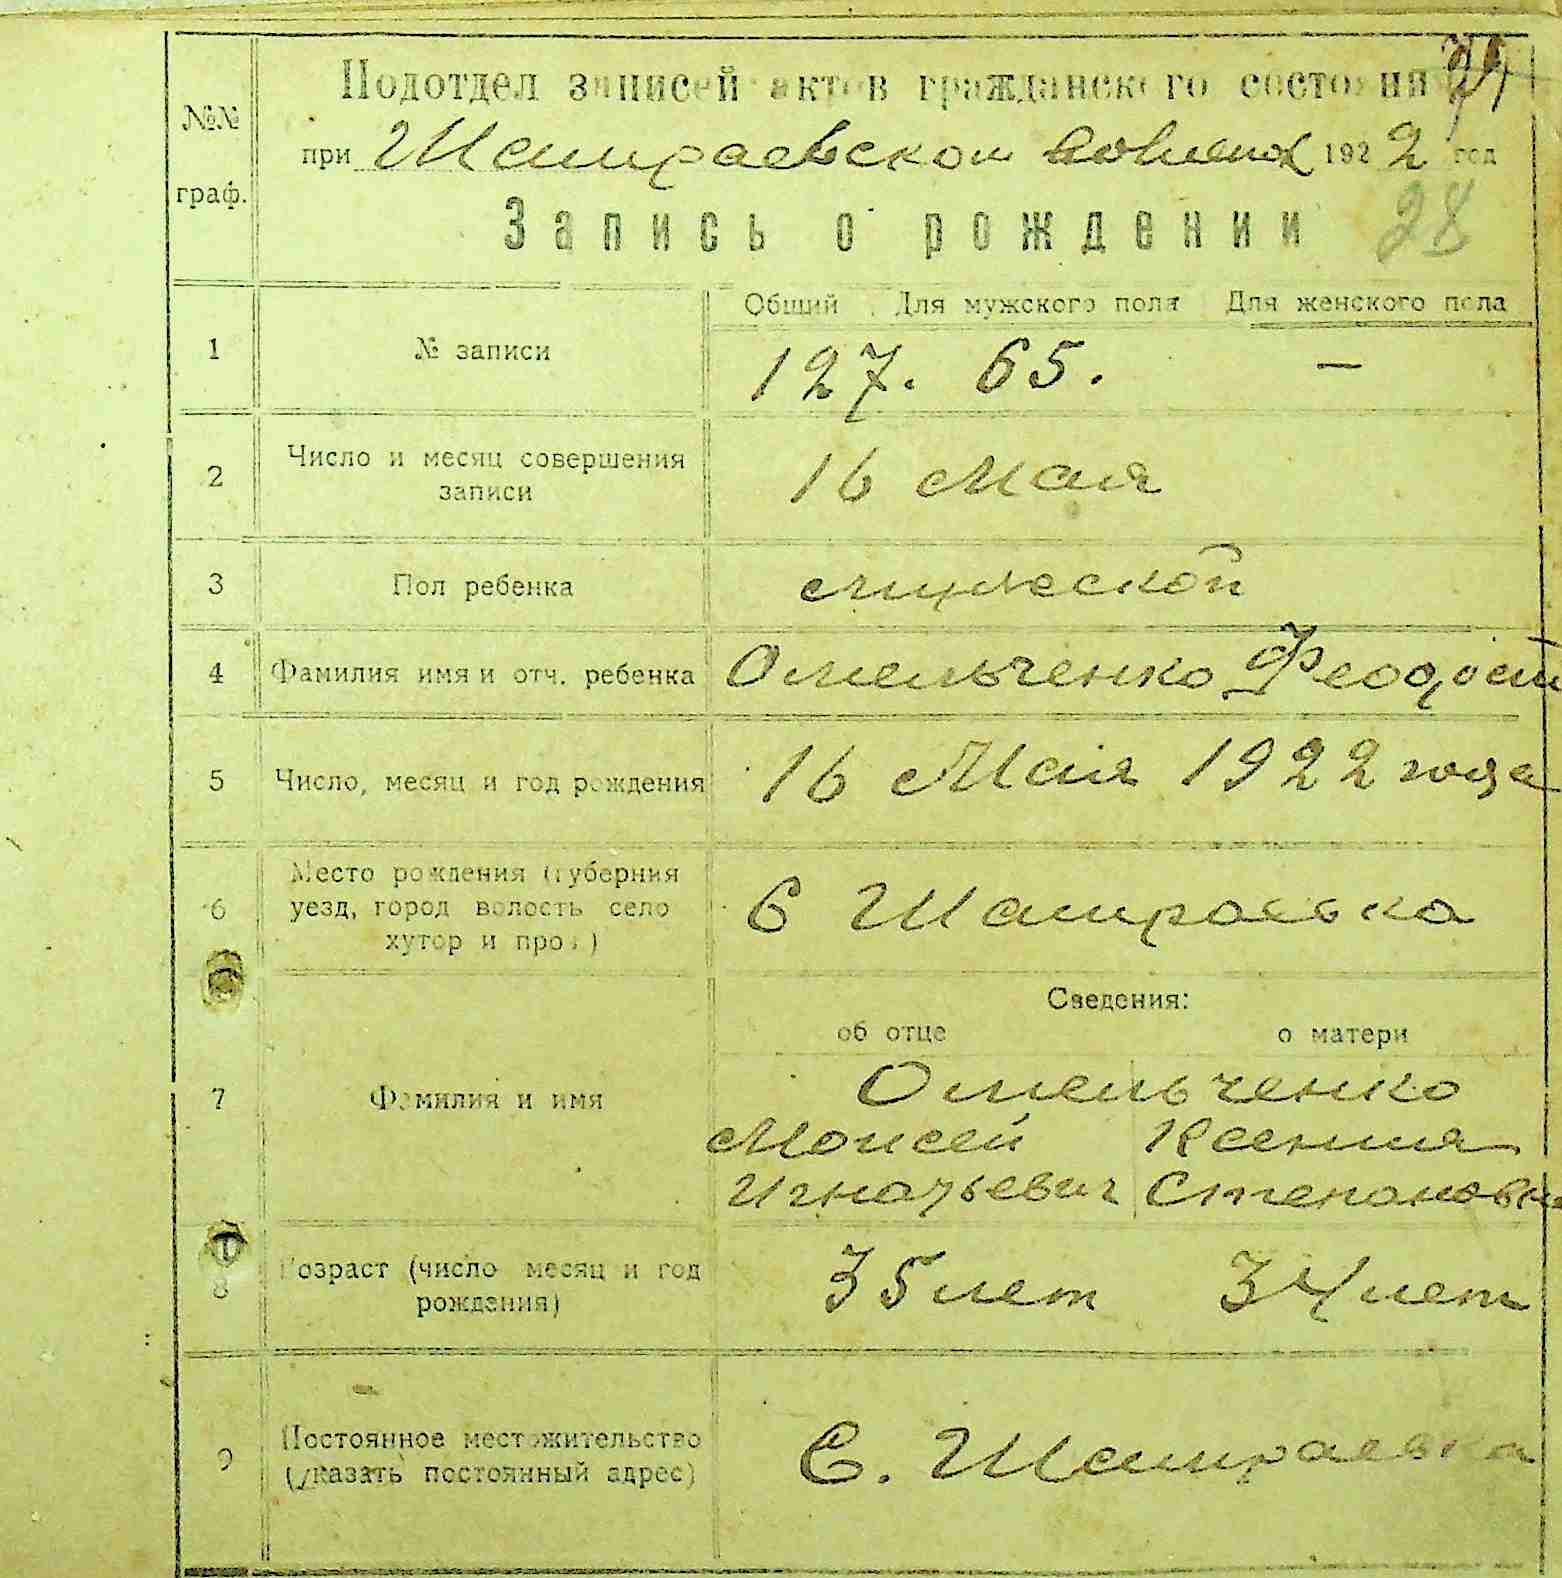 №№
граф.
Подотдел записей актов гражданского состояния
при Шамраевском 1922 год
Запись о рождении 28
Общий Для мужского пола Для женского пола
1 № записи 127. 65. —
2 Число и месяц совершения
записи 16 Мая
3 Пол ребенка мужеской
4 Фамилия имя и отч. ребенка Омельченко Феодосий
5 Число, месяц и год рождения 16 Мая 1922 года
6 Место рождения (губерния
уезд, город волость село
хутор и проч) С Шамраевка
Сведения:
об отце о матери
7 Фамилия и имя Омельченко
Моисей Ксения
Игнатьевич Степановна
8 Возраст (число месяц и год
рождения) 35 лет 34 лет
9 Постоянное местожительство
(указать постоянный адрес) С. Шамраевка